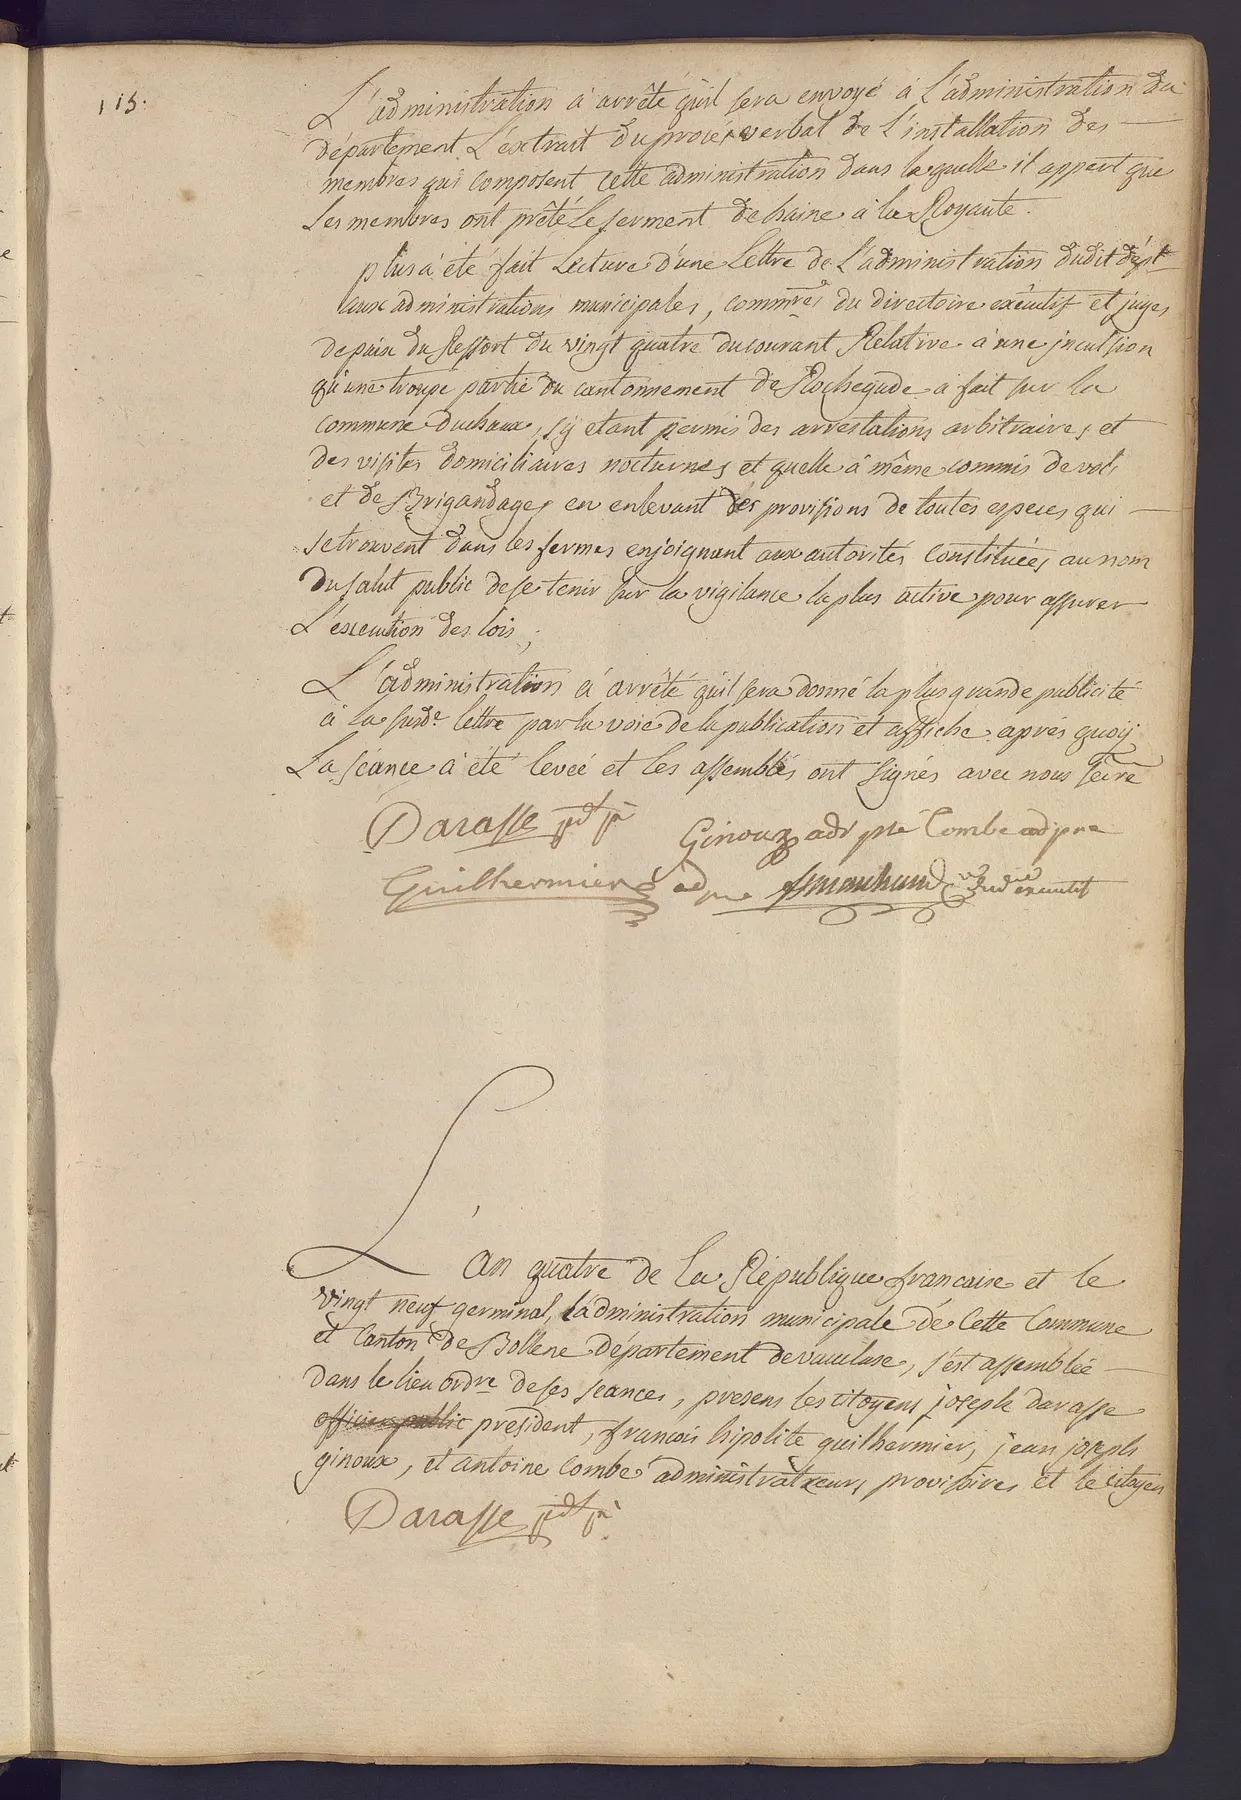 115.
L'administration à arrêté qu'il sera envoyé à L'administration du
département L'extrait du procés verbal de L'installation des
membres qui composent cette administration dans laquelle il appert que
Les membres ont prêté Le serment de haine à la Royauté.
plus à été fait Lecture d'une Lettre de L'administration dudit dépt
aux administrations municipales, commres du directoire exécutif et juges
de paix du Ressort du vingt quatre du courant Relative à une incursion
qu'une troupe partie du cantonnement de Rochegude à fait sur la
commune duchaux, s'y etant permis des arrestations arbitraires et
des visites domiciliaires nocturnes et quelle à même commis de vols
et de Brigandages en enlevant des provisions de toutes especes qui
se trouvent dans les fermes enjoignant aux autorités constituées au nom
Du salut public de se tenir sur la vigilance la plus active pour assurer
L'execution des lois,
L'administration à arrêté qu'il sera donné la plus grande publicité
à la susde lettre par la voie de la publication et affiche après quoy
La séance à été levée et les assemblés ont signés avec nous secre
Darasse pdt pre
Ginoux adt pre Combe ad pre
Guilhermier ad pre
L'an quatre de la République francaise et le
vingt neuf germinal, l'administration municipale de cette Commune
et Canton de Bollene département devaucluse, s'est assemblée
dans le lieu ordre de ses seances, presens les citoyens joseph darasse
officier public president, francois hipolite guilhermier, jean joseph
ginoux, et antoine combe administrateurs provisoires et le citoyen
Darasse pdt pre